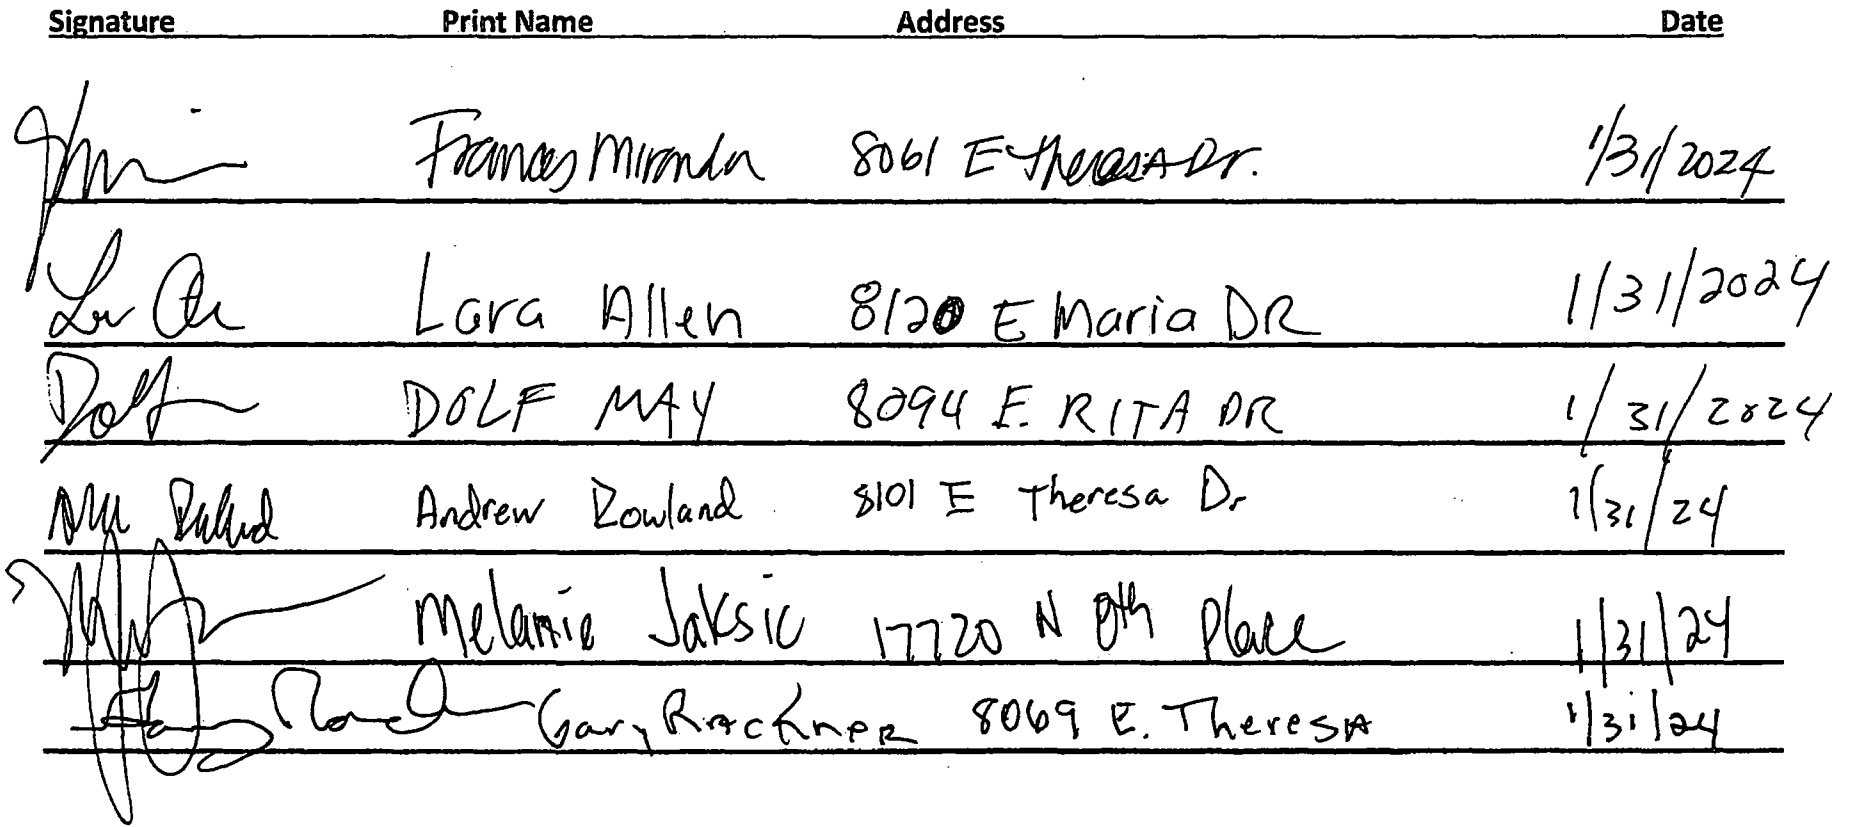 Signature Print Name Address Date
Frances Miranda 8061 E Theresa Dr. 1/31/2024
Lara Allen 8120 E Maria DR 1/31/2024
Dolf DOLF MAY 8094 E. RITA DR 1/31/2024
Andrew Rowland 8101 E Theresa Dr 1/31/24
Melanie Jaksic 17720 N 8th Place 1/31/24
Gary Rackner 8069 E. Theresa 1/31/24